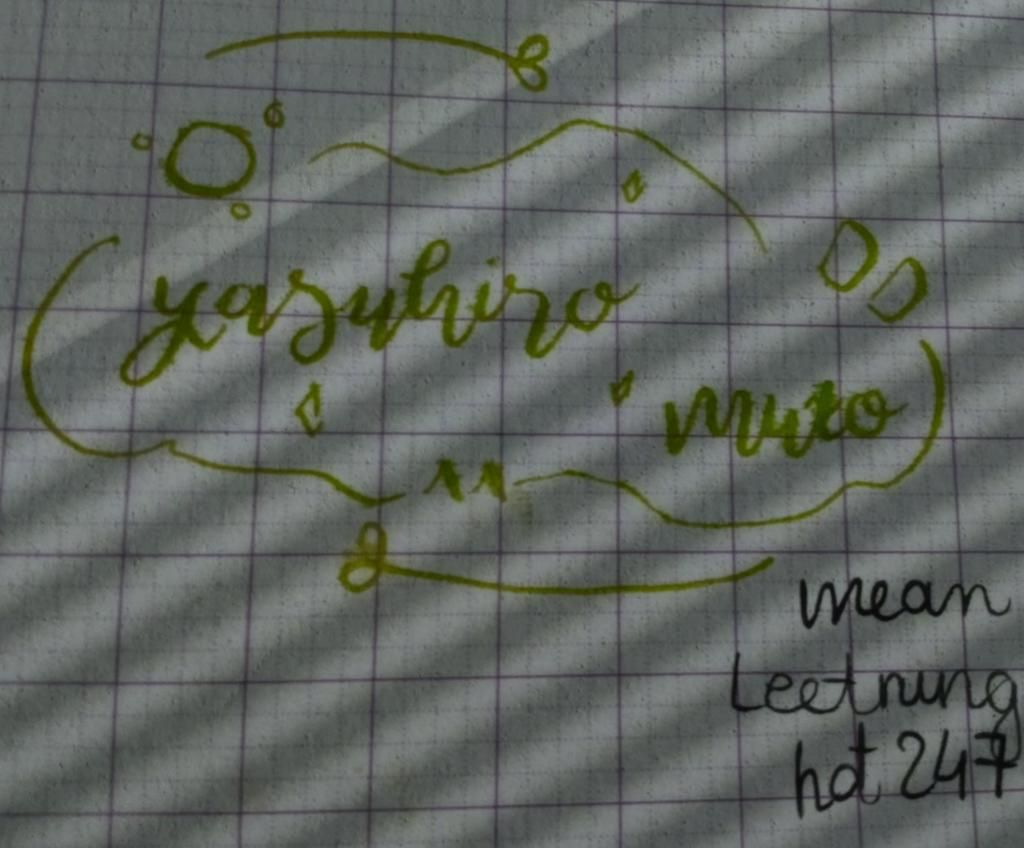 yasuhiro
muto
mean
Leetnung
hot 247